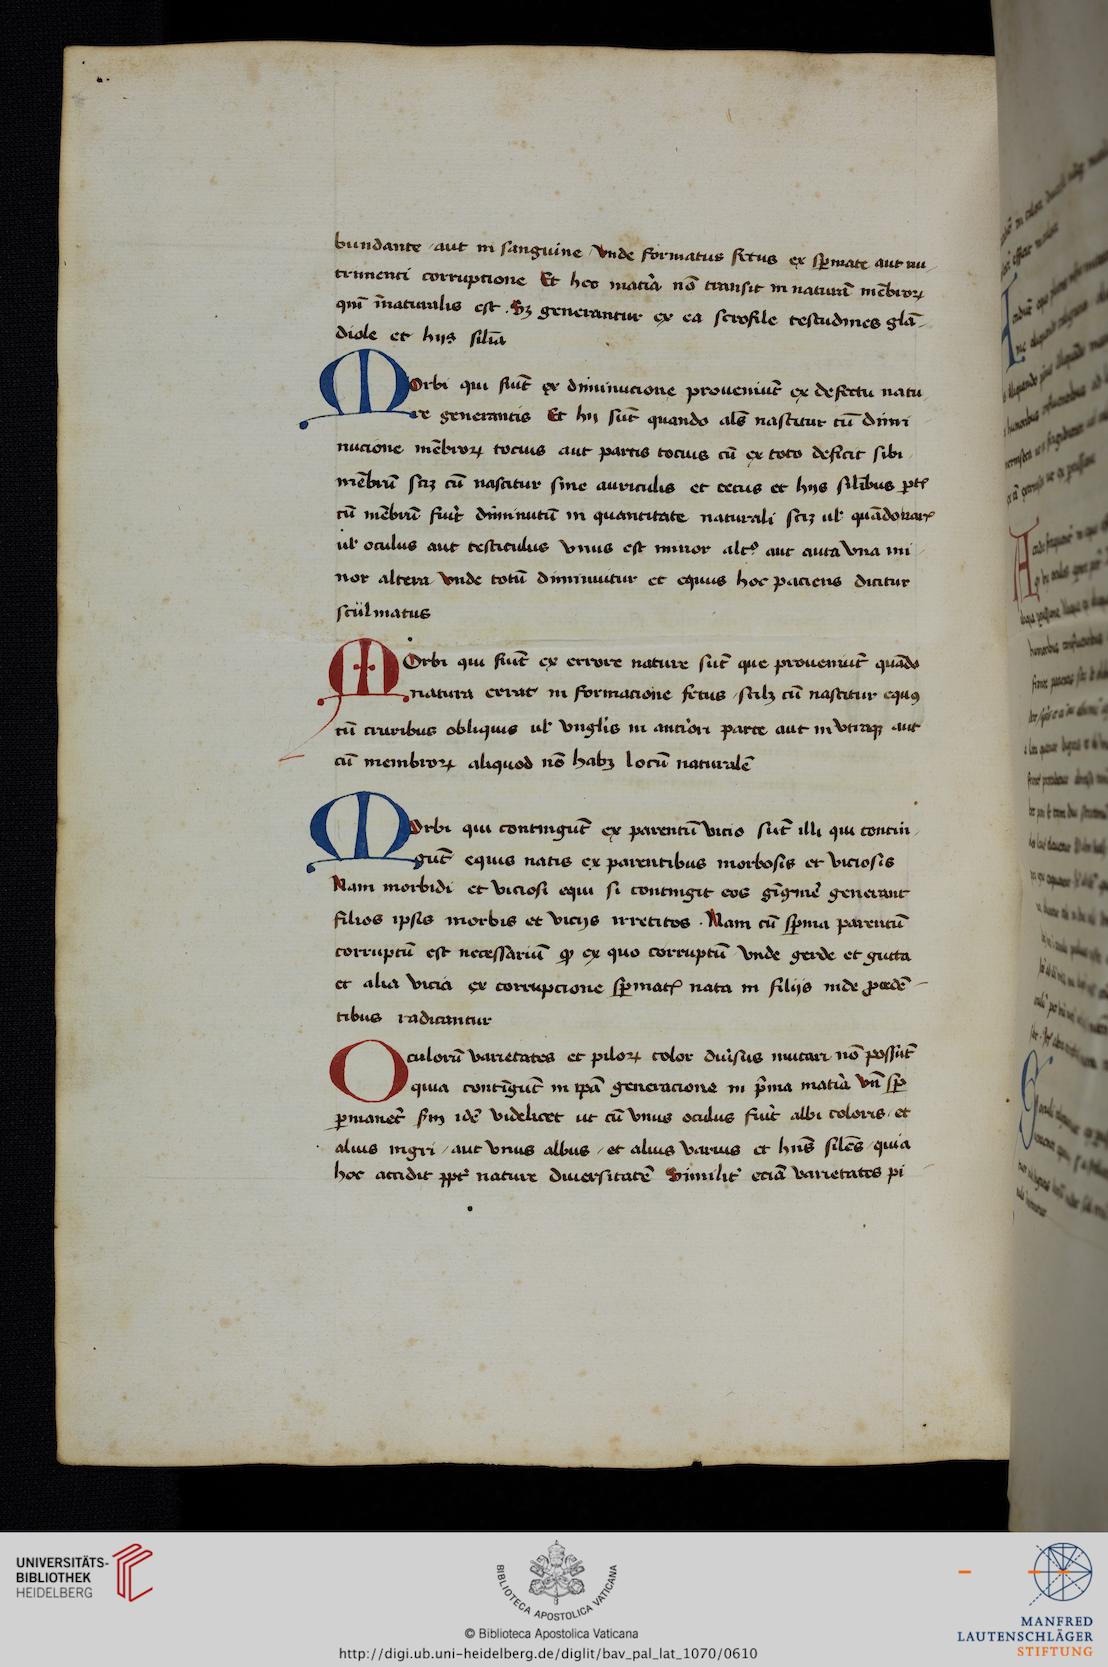 bundante / aut in sanguine / Vnde formatus fetus ex sp̄mate aut nu-
trimenti corrupcione Et hec matīa nō transit in naturā mēbroꝝ
qm̄ īnaturalis est . Sꝫ generantur ex ea scrofile testudines glā-
diole et hijs silīa
Morbi qui fiūt ex diminucione proveniūt ex defectu natu
re generantis Et hij sūt quando aīs nascitur cū dimi
nucione mēbroꝝ tocius aut partis tocius cū ex toto deficit sibi
mēbrū sciꝫ cū nascitur sine auriculis et cecus et hijs silibus
cū mēbrū fuīt diminutū in quantitate naturali sciꝫ ul̄
ul̄ oculus aut testiculus Vnus est minor alt̄ aut Vna mi
nor altera Vnde totū diminuitur et equus hoc paciens dicitur
scūlmatus
Morbi qui fiūt ex errore nature sūt que proveniūt quādo
natura errat in formacione fetus / scilꝫ cū nascitur equꝰ
cū cruribus obliquis ul̄ Vnglis in antīori parte aut in Vtraqꝫ aut
cū membroꝝ aliquod nō habꝫ locū naturalē
Morbi qui contingūt ex parentū vicio sūt illi qui contin
gūt equis natis ex parentibus morbosis et viciosis
Nam morbidi et viciosi equi si contingit eos gīgnē generant
filios ipsis morbis et vicijs irretitos . Nam cū sp̄ma parentū
corruptū est necessariū ꝙ ex quo corruptū Vnde gerde et gutta
et alia vicia ex corrupcione sp̄mat nata in filijs inde ꝓcedē-
tibus radicantur
Oculorū varietates et piloꝝ color diūsus mutari nō possūt
quia contīgūt in ip̄a generacione in p̄ma matīa vn̄ sp̄
ꝑmanet sm̄ idē videlicet ut cū Vnus oculus fuīt albi coloris / et
alius nigri / aut Vnus albus / et alius varius et hīis silēs / quia
hoc accidit ꝓpt nature diversitatē Similit eciā varietates pi
UNIVERSITÄTS-
BIBLIOTHEK
HEIDELBERG
BIBLIOTECA APOSTOLICA VATICANA
© Biblioteca Apostolica Vaticana
http://digi.ub.uni-heidelberg.de/diglit/bav_pal_lat_1070/0610
MANFRED
LAUTENSCHLÄGER
STIFTUNG